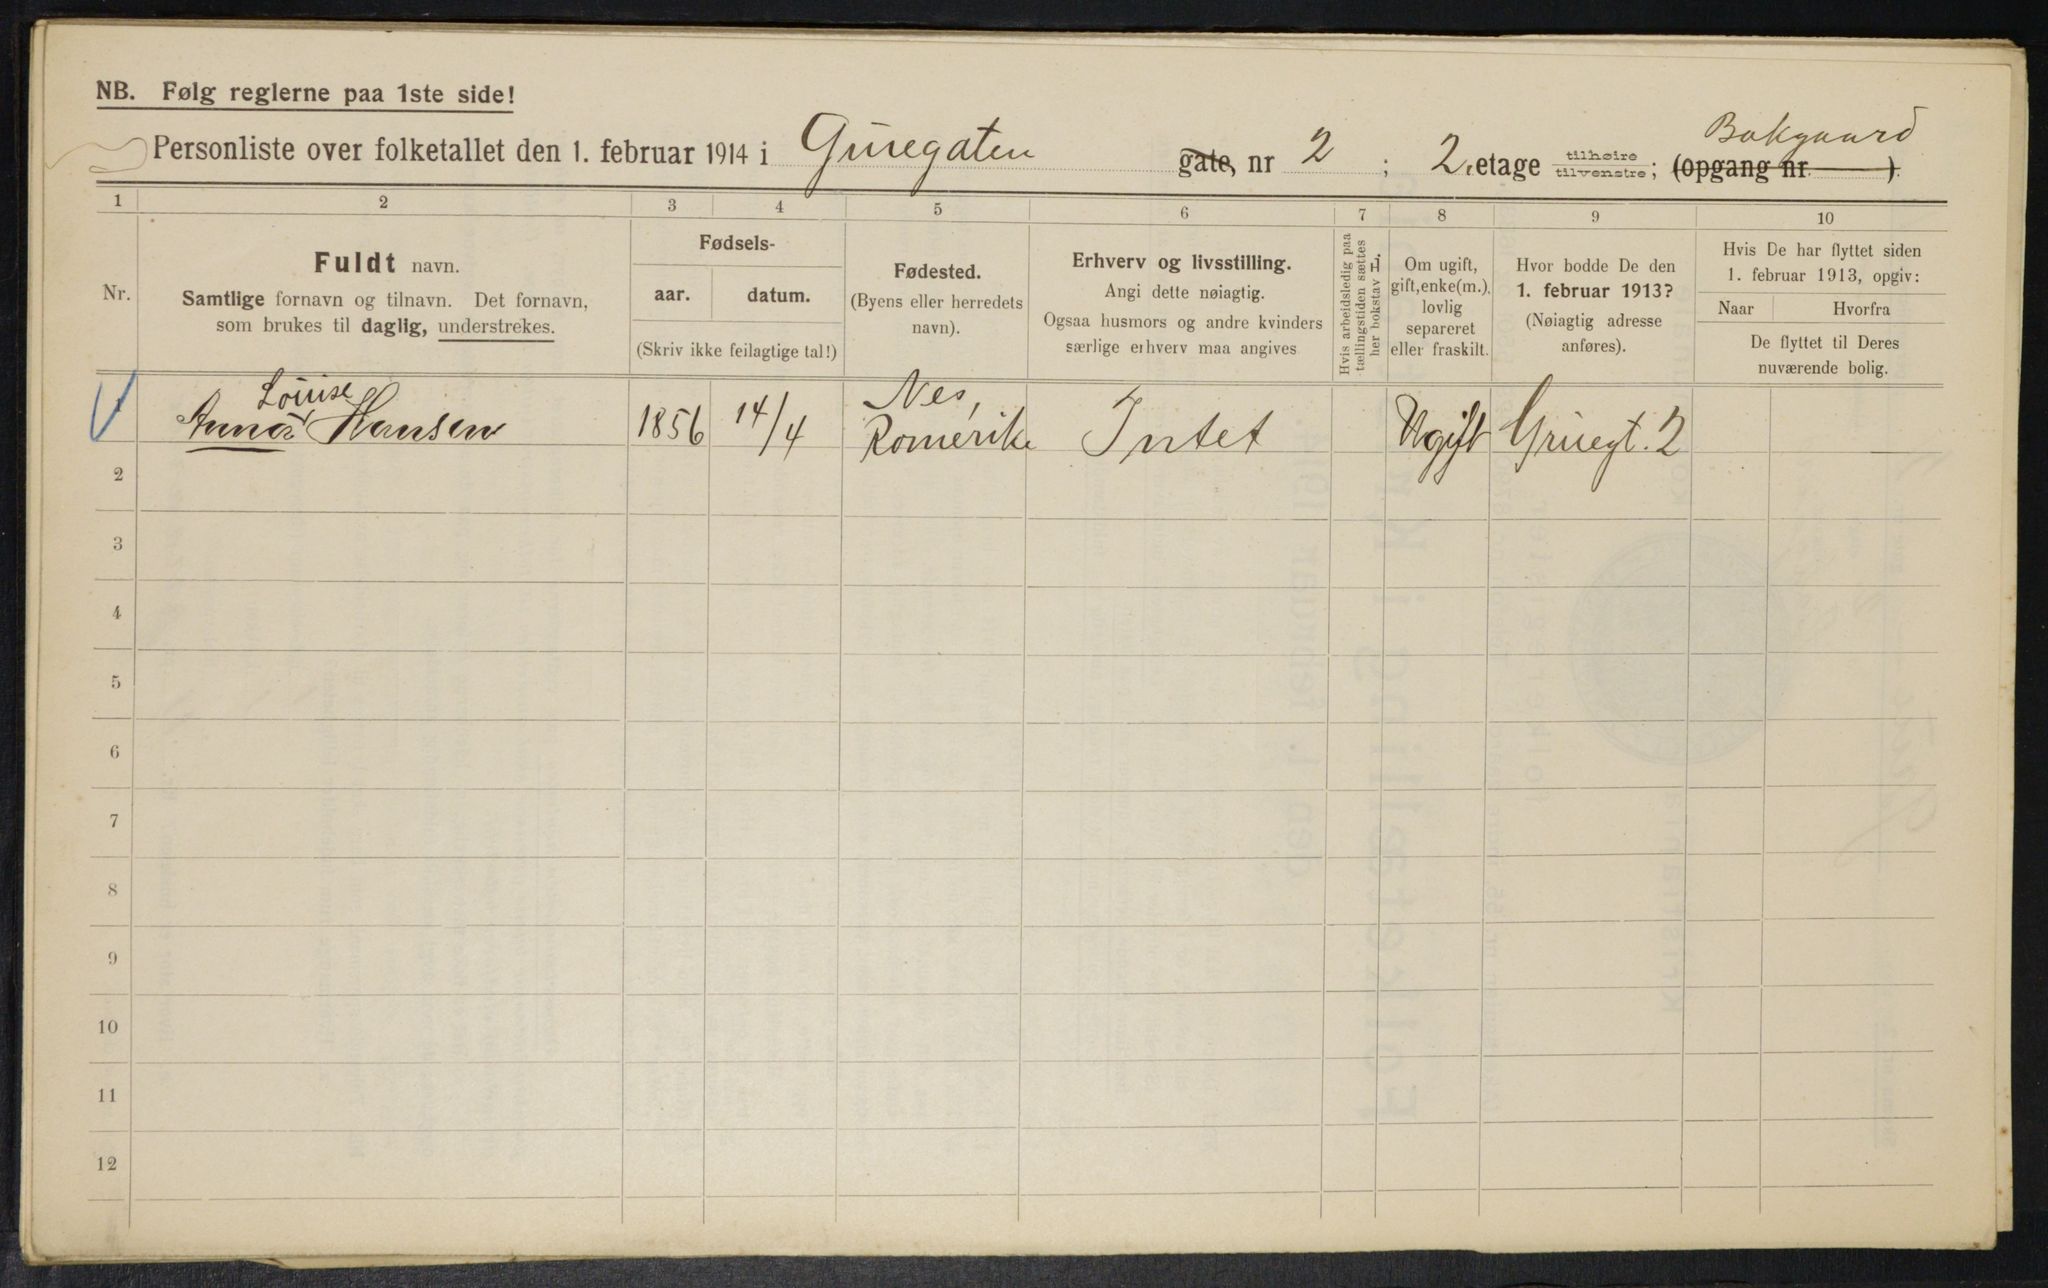 NB. Følg reglerne paa 1ste side!
Bakgaard
Personliste over folketallet den 1. februar 1914 i Gruegaten gate, nr 2 ; 2. etage tilhøire tilvenstre; (opgang nr )
1 2 3 4 5 6 7 8 9 10
Nr.
Fuldt navn.
Samtlige fornavn og tilnavn. Det fornavn,
som brukes til daglig, understrekes.
Fødsels-
aar. datum.
(Skriv ikke feilagtige tal!)
Fødested.
(Byens eller herredets
navn).
Erhverv og livsstilling.
Angi dette nøiagtig.
Ogsaa husmors og andre kvinders
særlige erhverv maa angives
Hvis arbeidsledig paa
tællingstiden sættes
her bokstav L.
Om ugift,
gift, enke(m.),
lovlig
separeret
eller fraskilt.
Hvor bodde De den
1. februar 1913?
(Nøiagtig adresse
anføres).
Hvis De har flyttet siden
1. februar 1913, opgiv:
Naar Hvorfra
De flyttet til Deres
nuværende bolig.
Louise
Anna Hansen 1856 14/4 Nes, Romerike Intet Ugift Gruegt. 2
2
3
4
5
6
7
8
9
10
11
12